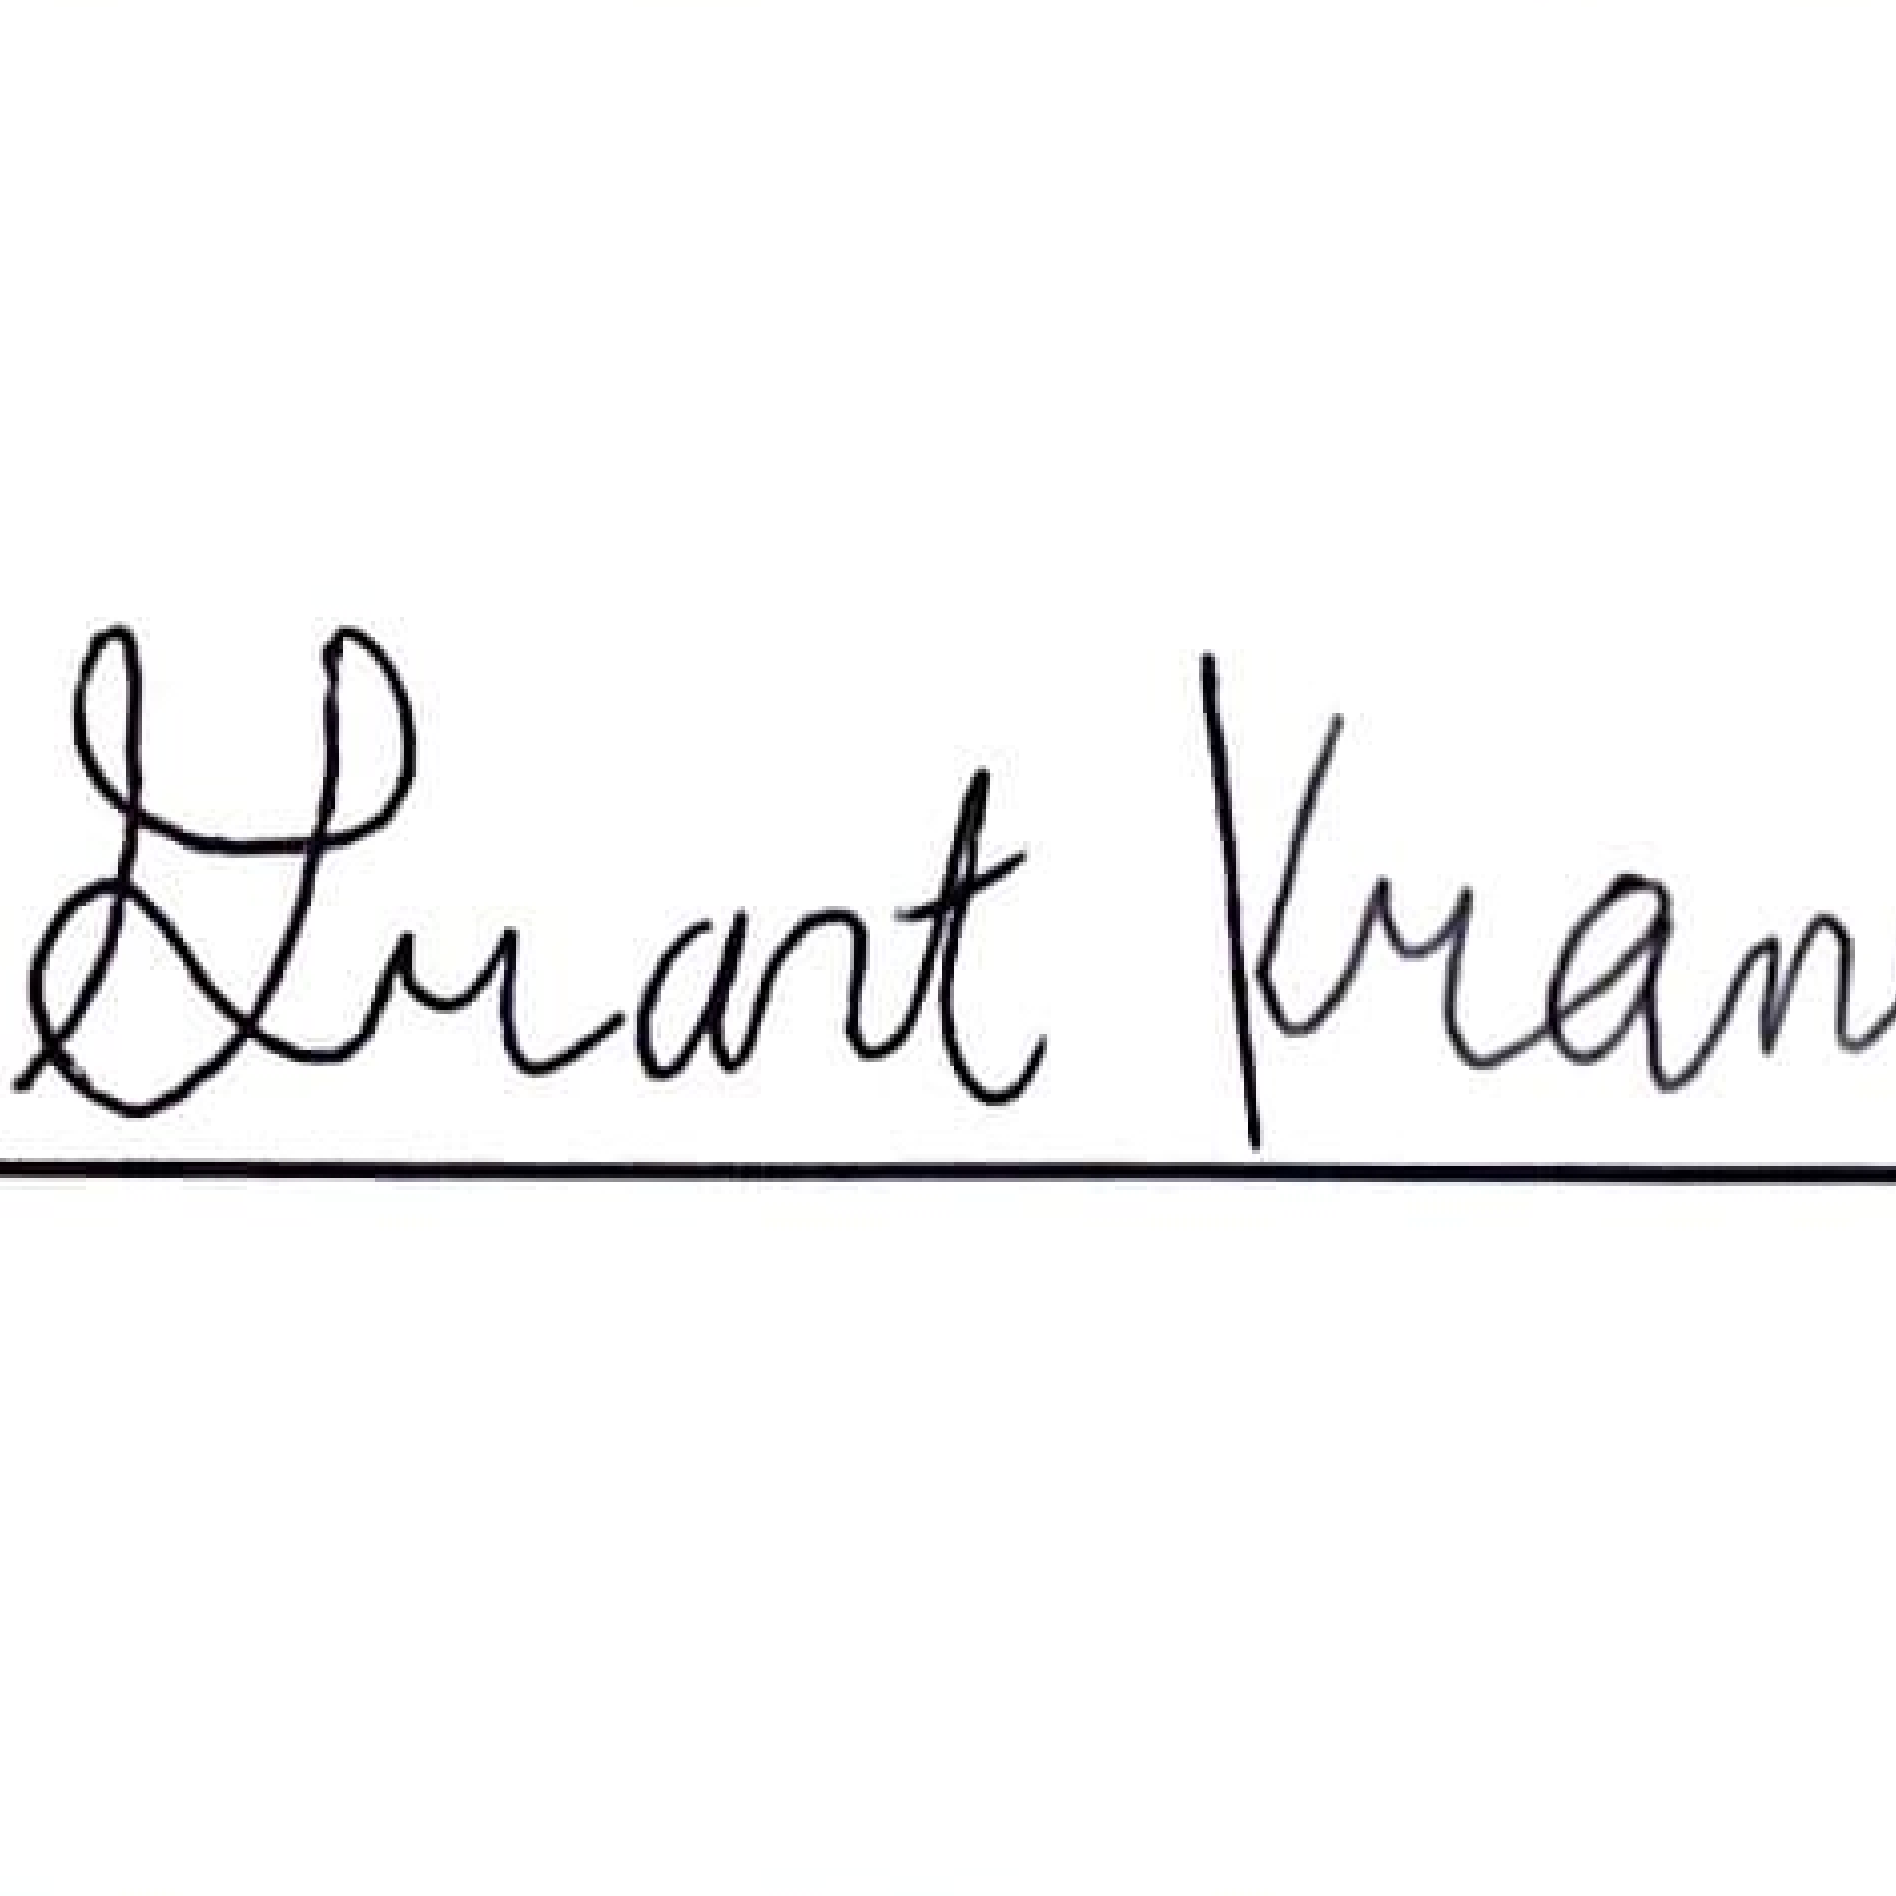 Grant Kran